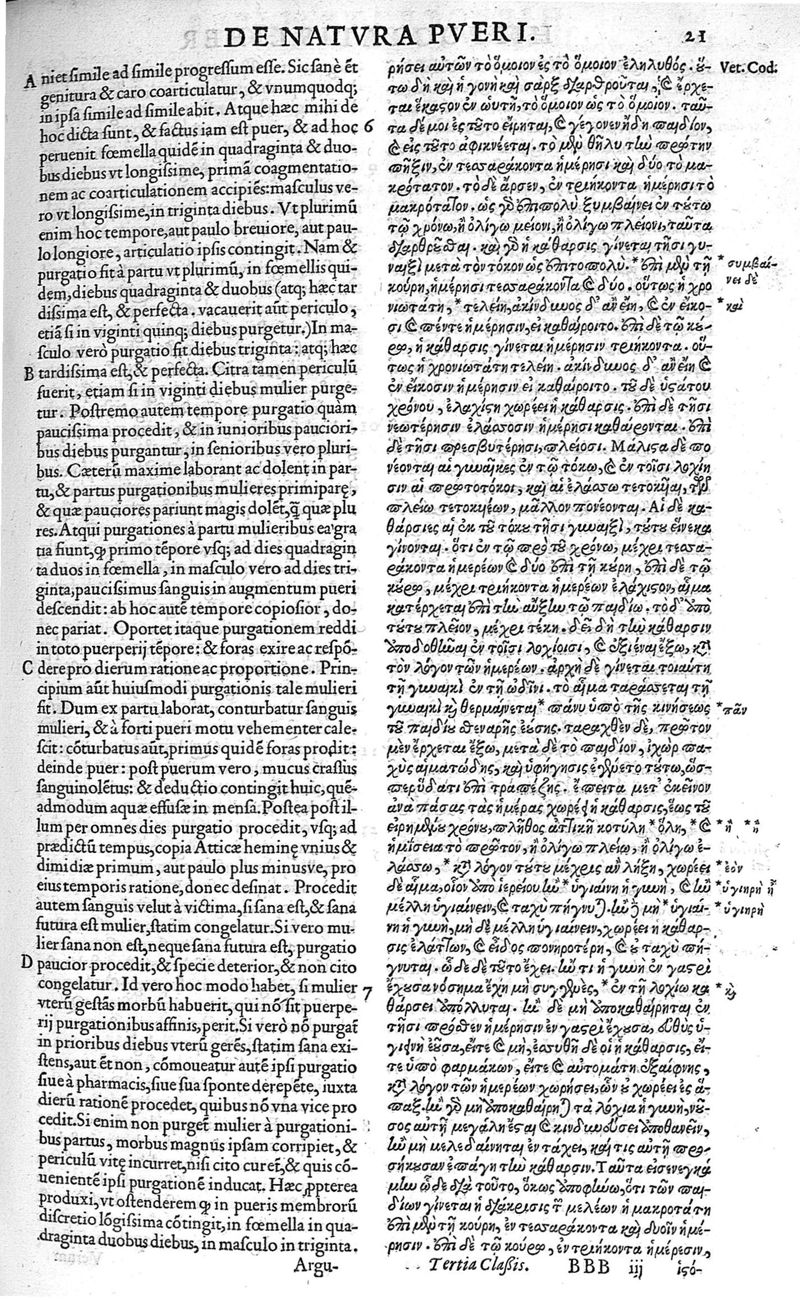 DE NATVRA PVERI. 21
A niet simile ad simile progressum esse. Sic sanè et
genitura & caro coarticulatur, & vnumquodq;
in ipsa simile ad simile abit. Atque hæc mihi de
hoc dicta sunt, & factus iam est puer, & ad hoc 6
peruenit fœmella quidē in quadraginta & duo-
bus diebus vt longissime, primā coagmentatio-
nem ac coarticulationem accipiēs: masculus ve-
ro vt longissime, in triginta diebus. Vt plurimū
enim hoc tempore, aut paulo breuiore, aut pau-
lo longiore, articulatio ipsis contingit. Nam &
purgatio fit à partu vt plurimū, in fœmellis qui-
dem, diebus quadraginta & duobus (atq; hæc tar
dissima est, & perfecta. vacauerit aūt periculo,
etiā si in viginti quinq; diebus purgetur.) In ma-
sculo verò purgatio fit diebus triginta: atq; hæc
B tardissima est, & perfecta. Citra tamen periculū
fuerit, etiam si in viginti diebus mulier purge-
tur. Postremo autem tempore purgatio quàm
paucissima procedit, & in iunioribus pauciori-
bus diebus purgantur, in senioribus vero pluri-
bus. Cæterū maxime laborant ac dolent in par-
tu, & partus purgationibus mulieres primiparę,
& quæ pauciores pariunt magis dolēt, q̃ quæ plu
res. Atqui purgationes à partu mulieribus ea gra
tia fiunt, q̃ primo tēpore vsq; ad dies quadragin
ta duos in fœmella, in masculo vero ad dies tri-
ginta, paucissimus sanguis in augmentum pueri
descendit: ab hoc autē tempore copiosior, do-
nec pariat. Oportet itaque purgationem reddi
in toto puerperij tēpore: & foras exire ac respō-
C dere pro dierum ratione ac proportione. Prin-
cipium aūt huiusmodi purgationis tale mulieri
fit. Dum ex partu laborat, conturbatur sanguis
mulieri, & à forti pueri motu vehementer cale-
scit: cōturbatus aūt, primus quidē foras prodit:
deinde puer: post puerum vero, mucus crassus
sanguinolētus: & deductio contingit huic, quē-
admodum aquæ effusæ in mensa. Postea post il-
lum per omnes dies purgatio procedit, vsq; ad
prædictū tempus, copia Atticæ heminę vnius &
dimidiæ primum, aut paulo plus minusve, pro
eius temporis ratione, donec desinat. Procedit
autem sanguis velut à victima, si sana est, & sana
futura est mulier, statim congelatur. Si vero mu-
lier sana non est, neque sana futura est, purgatio
D paucior procedit, & specie deterior, & non cito
congelatur. Id vero hoc modo habet, si mulier 7
vterū gestās morbū habuerit, qui nō sit puerpe-
rij purgationibus affinis, perit. Si verò nō purgat
in prioribus diebus vterū gerēs, statim sana exi-
stens, aut et non, cōmoueatur autē ipsi purgatio
siue à pharmacis, siue sua sponte derepēte, iuxta
dierū rationē procedet, quibus nō vna vice pro
cedit. Si enim non purget mulier à purgationi-
bus partus, morbus magnus ipsam corripiet, &
periculū vitę incurret, nisi cito curet, & quis cō-
uenientē ipsi purgationē inducat. Hæc ppterea
produxi, vt ostenderem q̃ in pueris membrorū
discretio lōgissima cōtingit, in fœmella in qua-
draginta duobus diebus, in masculo in triginta.
Argu-
ρήσει αὐτῶν τὸ ὅμοιον ἐς τὸ ὅμοιον ἐληλυθός. οὕ- Vet. Cod.
τω δὴ καὶ ἡ γονὴ καὶ σὰρξ διαρθροῦται, καὶ ἔρχε-
ται ἕκαστον ἐν ωὐτῇ, τὸ ὅμοιον ὡς τὸ ὅμοιον. ταῦ-
τα δέ μοι ἐς τοῦτο εἴρηται, καὶ γέγονεν ἤδη παιδίον,
καὶ εἰς τοῦτο ἀφικνέεται. τὸ μὲν θῆλυ τὴν πρώτην
πῆξιν, ἐν τεσσαράκοντα ἡμέρῃσι καὶ δύο τὸ μα-
κρότατον. τὸ δὲ ἄρσεν, ἐν τριήκοντα ἡμέρῃσι τὸ
μακρότατον. ὡς γὰρ ἐπιπολὺ ξυμβαίνει ἐν τούτῳ
τῷ χρόνῳ, ἢ ὀλίγῳ μείονι, ἢ ὀλίγῳ πλείονι, ταῦτα
διαρθρεῖσθαι. καὶ γὰρ ἡ κάθαρσις γίνεται τῇσι γυ-
ναιξὶ μετὰ τὸν τόκον ὡς ἐπιτοπολύ. * ἐπὶ μὲν τῇ * συμβαί-
νει δὲ
κούρῃ, ἡμέρῃσι τεσσαράκοντα καὶ δύο. οὕτως ἡ χρο
νιωτάτη, * τελείη, ἀκίνδυνος δ' ἂν εἴη, καὶ ἐν εἴκο- * καὶ
σι καὶ πέντε ἡμέρῃσιν, εἰ καθαίροιτο. ἐπὶ δὲ τῷ κού-
ρῳ, ἡ κάθαρσις γίνεται ἡμέρῃσιν τριήκοντα. οὕ-
τως ἡ χρονιωτάτη τελείη. ἀκίνδυνος δ' ἂν εἴη καὶ
ἐν εἴκοσιν ἡμέρῃσιν εἰ καθαίροιτο. τοῦ δὲ ὑστάτου
χρόνου, ἐλαχίστη χωρέει ἡ κάθαρσις. ἐπὶ δὲ τῇσι
νεωτέρῃσιν ἐλάσσοσιν ἡμέρῃσι καθαίρονται. ἐπὶ
δὲ τῇσι πρεσβυτέρῃσι, πλείοσι. Μάλιστα δὲ πο
νέονται αἱ γυναῖκες ἐν τῷ τόκῳ, καὶ ἐν τοῖσι λοχίη
σιν αἱ πρωτοτόκοι, καὶ αἱ ἐλάσσω τετοκῦιαι, τῶν
πλείω τετοκηιῶν, μᾶλλον πονέονται. Αἱ δὲ κα-
θάρσιες αἱ ἐκ τοῦ τόκου τῇσι γυναιξὶ, τούτου εἵνεκα
γίνονται. ὅτι ἐν τῷ πρὸ τοῦ χρόνῳ, μέχρι τεσσα-
ράκοντα ἡμερέων καὶ δύο ἐπὶ τῇ κούρῃ, ἐπὶ δὲ τῷ
κούρῳ, μέχρι τριήκοντα ἡμερέων ἐλάχιστον, αἷμα
κατέρχεται ἐπὶ τὴν αὔξην τῷ παιδίῳ. τὸ δ' ἀπὸ
τούτου πλεῖον, μέχρι τέκῃ. δεῖ δὴ τὴν κάθαρσιν
ἀποδοθῆναι ἐν τοῖσι λοχίοισι, καὶ ἐξιέναι ἔξω, κατὰ
τὸν λόγον τῶν ἡμερέων. ἀρχὴ δὲ γίνεται τοιαύτη
τῇ γυναικὶ ἐν τῇ ὠδῖνι. τὸ αἷμα ταράσσεται τῇ
γυναικὶ καὶ θερμαίνεται * πάνυ ὑπὸ τῆς κινήσεως * πᾶν
τοῦ παιδίου σθεναρῆς ἐούσης. ταραχθὲν δὲ, πρῶτον
μὲν ἔρχεται ἔξω, μετὰ δὲ τὸ παιδίον, ἰχὼρ πα-
χὺς αἱματώδης, καὶ ὑφήγησις ἐγένετο τούτῳ, ὥσ-
περ ὕδατι ἐπὶ τραπέζης. ἔπειτα μετ' ἐκεῖνον
ἀνὰ πάσας τὰς ἡμέρας χωρέει ἡ κάθαρσις, ἕως τοῦ
εἰρημένου χρόνου, πλῆθος ἀττικὴ κοτύλη * ὅλη, * καὶ * ἢ *ἢ
ἡμίσεια τὸ πρῶτον, ἢ ὀλίγῳ πλείω, ἢ ὀλίγῳ ἐ-
λάσσω, * κατὰ λόγον τούτου μέχρις ἂν λήξῃ, χωρέει * ἐὸν
δὲ αἷμα, οἷον ἀπὸ ἱερείου ἢν * ὑγιαίνῃ ἡ γυνὴ, καὶ ἢν * ὑγιηρὴ ᾖ
μέλλῃ ὑγιαίνειν, καὶ ταχὺ πήγνυται. ἢν δὲ μὴ * ὑγιαί- * ὑγιηρὴ
νῃ ἡ γυνὴ, μὴ δὲ μέλλῃ ὑγιαίνειν, χωρέει ἡ κάθαρ-
σις ἐλάττων, καὶ εἶδος πονηροτέρη, καὶ οὐ ταχὺ πή-
γνυται. ὧδε δὲ τοῦτο ἔχει. ἤν τι ἡ γυνὴ ἐν γαστρὶ
ἔχουσα νόσημα ἔχῃ μὴ συγγενὲς, * ἐν τῇ λοχίῳ κα * καὶ
θάρσει ἀπόλλυται. ἢν δὲ μὴ ἀποκαθαίρηται ἐν
τῇσι πρῶτεν ἡμέρῃσιν ἐν γαστρὶ ἔχουσα, εὐθὺς ὑ-
γιηνὴ ἐοῦσα, εἴτε καὶ μὴ, ἐσσυθῇ δὲ οἱ ἡ κάθαρσις, εἴ-
τε ὑπὸ φαρμάκων, εἴτε καὶ αὐτομάτη ἐξαίφνης,
κατὰ λόγον τῶν ἡμερέων χωρήσει, ὧν οὐ χωρέει ἐς ἅ-
παξ. ἢν γὰρ μὴ ἀποκαθαίρηται τὰ λόχια ἡ γυνὴ, νοῦ-
σος αὐτῇ μεγάλη ἔσται καὶ κινδυνεύσει ἀποθανεῖν,
ἢν μὴ μελεδαίνηται ἐν τάχει, καί τις αὐτῇ προ-
σήκουσαν ἐπάγῃ τὴν κάθαρσιν. Ταῦτα εἰσενεγκά
μην ὧδε διὰ τοῦτο, ὅκως ἀποφήνω, ὅτι τῶν παι-
δίων γίνεται ἡ διάκρισις τῶν μελέων ἡ μακροτάτη
ἐπὶ μὲν τῇ κούρῃ, ἐν τεσσαράκοντα καὶ δυοῖν ἡμέ-
ρῃσιν. ἐπὶ δὲ τῷ κούρῳ, ἐν τριήκοντα ἡμέρεσιν,
Tertia Classis. BBB iij ἱστό-